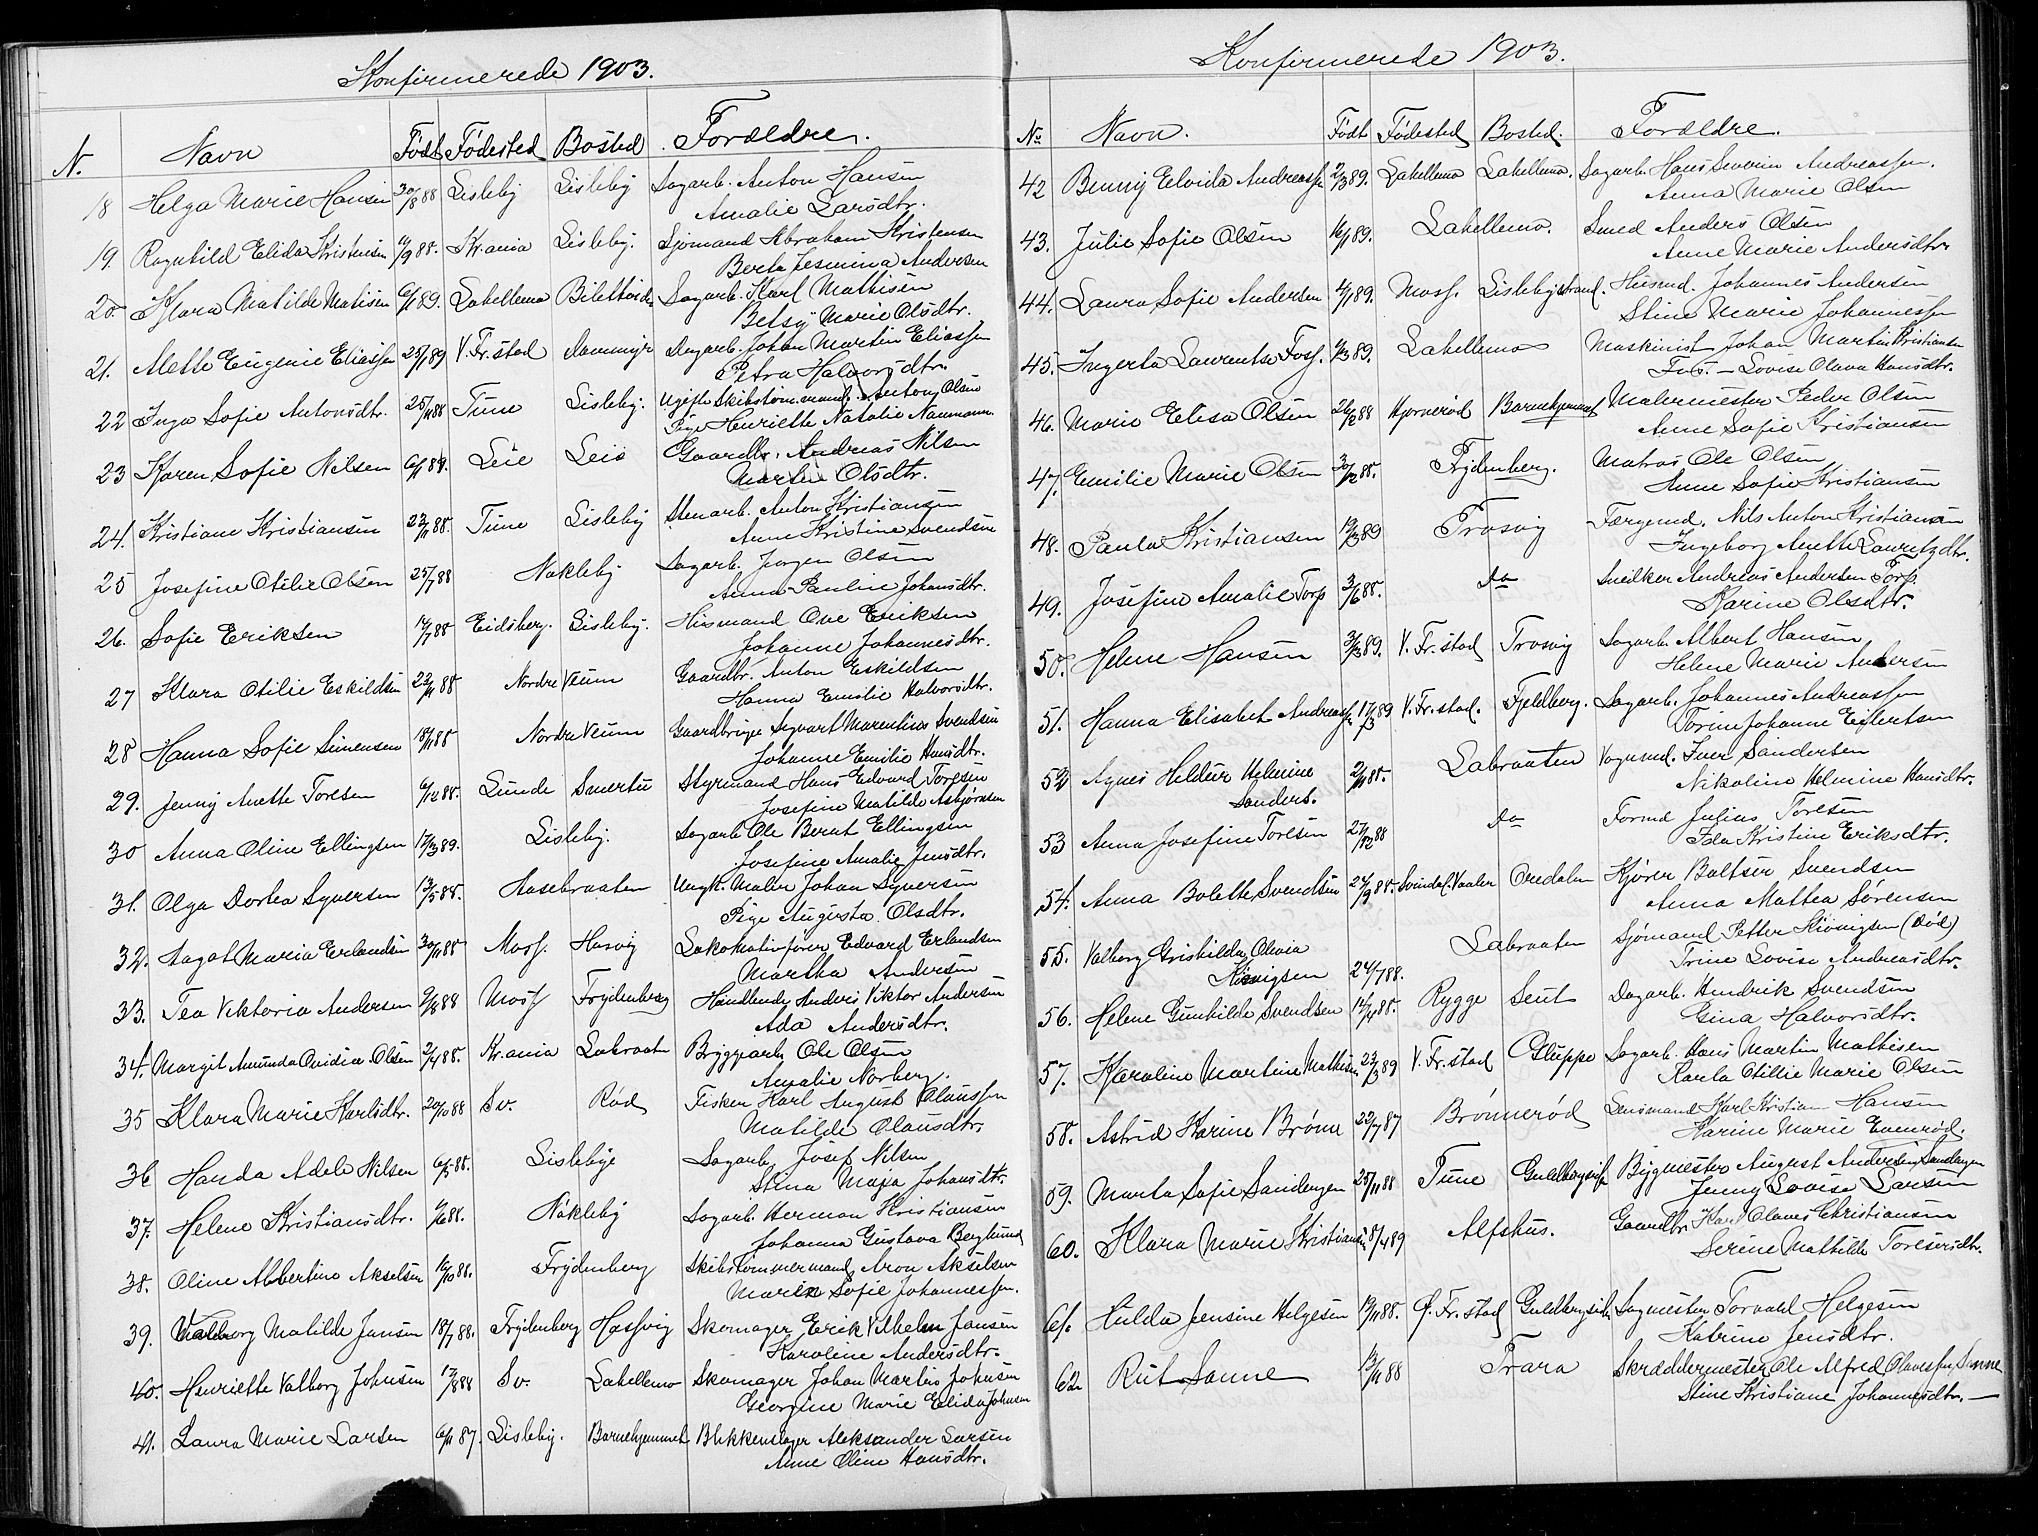 Konfirmerede 1903.
N. Navn Født Fødested Bosted Forældre.
18 Helga Marie Hansen 30/8 88 Lisleby Lisleby Sagarb. Anton Hansen
Amalie Larsdtr.
19. Ragnhild Elida Kristensen 11/9 88. Kr.ania Lisleby. Sjömand Abraham Kristensen
Berta Jesmina Andersen
20. Klara Matilde Matisen 6/1 89. Labellemo Sagarb. Karl Mathisen
Betsy Marie Olsdtr.
21. Mette Eugenie Eliassen 25/1 89 V. Fr.stad Dammyr Dagarb. Johan Martin Eliassen
Petra Halvorsdtr.
22 Inga Sofie Antonsdtr. 25/11 88 Tune Lisleby. Ugifte Skibstöm.mand Anton Olsen
Pige Henriette Natalie Naumann.
23 Karen Sofie Nilsen Leie Leie Gaardbr. Andreas Nilsen
Martin Olsdtr.
24. Kristiane Kristiansen 23/11 88. Tune Lisleby Stenarb. Anton Kristiansen
Anne Kristine Svendsen
25 Josefine Otilie Olsen 25/7 88 Nokleby Sagarb. Jørgen Olsen
Anna Pauline Johansdtr.
26. Sofie Eriksen 17/7 88 Eidsberg. Lisleby. Husmand Ove Eriksen
Johanne Johannesdtr.
27 Klara Otilie Eskildsen 22/11 88 Nordre Veum Gaardbr. Anton Eskildsen
Hanna Emilie Halvorsdtr.
28 Hanna Sofie Simensen 18/11 88 Nordre Veum Gaardbruger Syvart Marentius Svendsen
Johanne Emilie Hansdtr.
29. Jenny Anette Toresen 6/12 88. Lunde Smertu Styrmand Hans Edvard Toresen
Josefine Matilde Asbjørnsen
30 Anna Oline Ellingsen 17/3 89. Lisleby. Sagarb Ole Bernt Ellingsen
Josefine Amalie Jensdtr.
31. Olga Dortea Syversen 13/5 88. Aasebraaten Ungk. Maler Johan Syversen
Pige Augusta Olsdtr.
32. Aagot Maria Erlandsen 30/11 88 Moss. Hasvig Lokomotivfører Edvard Erlandsen
Martha Andersen
33. Tea Viktoria Andersen 9/8 88 Moss Frydenberg Handlende Anders Viktor Andersen
Ada Andersdtr.
34. Margit Amunda Ovidia Olsen 2/4 88. Kr.ania Labraaten Bryggearb Ole Olsen
Amalie Norberg.
35 Klara Marie Karlsdtr. 20/10 88 Sv. Rød Fisker Karl August Claussen
Matilde Olausdtr.
36 Handa Adele Nilsen 6/5 88. Lislebye Sagarb. Josef Nilsen
Stina Maja Johansdtr.
37. Helene Kristiansdtr. 4/6 88. Nökleby Sagarb. Herman Kristiansen
Johanna Gustava Berglund
38. Oline Albertine Akselsen 16/10 88. Frydenberg Skibstömmermand Aron Akselsen
Marie Sofie Johannessen.
39. Valborg Matilde Jansen 18/7 88. Frydenberg Hassvig Skomager Erik Vilhelm Jansen
Karoline Andersdtr.
40. Henriette Valborg Johnsen 17/8 88 Sv. Labellemo Skomager Johan Martin Johnsen
Georgine Marie Elida Johnsen
41. Laura Marie Larsen 6/11 87. Lisleby. Barnehjemmet Blikkenslager Aleksander Larsen
Anne Oline Hansdtr.
Konfirmerede 1903.
No Navn. Født Fødested Bosted. Forældre.
42 Benny Elvida Andreassen 2/3 89. Labellemo Labellemo. Sagarb. Hans Severin Andreassen.
Anna Marie Olsen
43. Julie Sofie Olsen 16/1 89. Labellemo. Smed Anders Olsen
Anne Marie Andersdtr.
44. Laura Sofie Andersen 4/1 89. Moss. Lislebystrand. Husmd. Johannes Andersen
Stine Marie Johannessen
45. Ingerta Laurentse Foss. Labellemo Maskinist Johan Martin Kristiansen
Fos. — Lovise Olava Hansdtr.
46. Marie Elisa Olsen 26/2 88 Hjornerød Barnehjemmet Malermester Peder Olsen
Anne Sofie Kristiansen
47. Emilie Marie Olsen 30/12 88. Frydenberg. Matros Ole Olsen
Anne Sofie Kristiansen
48. Paula Kristiansen 19/3 89 Trosvig Færgemd. Nils Anton Kristiansen
Ingeborg Anette Lauritzdtr.
49. Josefine Amalie Torp 3/6 88. do Snedker Andreas Andersen Torp.
Karine Olsdtr.
50. Helene Hansen 3/3 89. V. Fr.stad Trosvig Sagarb. Albert Hansen
Helene Marie Andersen
51. Hanna Elisabet Andreassen 17/3 89 V. Fr.stad. Fjeldberg. Sagarb. Johannes Andreassen
Torine Johanne Eilertsen
52 Agnes Heldur Helmine 2/11 88. Labraaten Vognmd. Iver Sandersen
Sanders. Nikoline Helmine Hansdtr.
53 Anna Josefine Toresen 27/12 88 do Formd Julius Toresen
Ida Kristine Eriksdtr.
54. Anna Bolette Svendsen 24/9 88. Svindal. Vaaler Oredalen Kjører Baltser Svendsen
Anna Mathea Sörensen
55. Valborg Griskilda Olivia Labraaten Sjömand Petter Kiönigsen (död)
Kiönigsen 24/7 88. Trine Lovise Andreasdtr.
56. Helene Gunhilde Svendsen 12/4 88. Rygge Seut Dagarb. Hendrik Svendsen
Gina Halvorsdtr.
57. Karoline Martine Mathisen 23/3 89 V. Fr.stad Gluppe Sagarb. Hans Martin Mathisen
Karla Otillie Marie Olsen
58. Astrid Karine Brönn 22/7 87 Brönnerød Lensmand Karl Kristian Hansen
Karine Marie Evenrød.
59. Marta Sofie Sandengen 25/11 88 Tune Guldbergsida Bygmester August Andersen Sandengen
Jenny Lovise Larsen
60. Klara Marie Kristiansen 8/4 89 Alfshus. Gaardbr. Karl Olaves Christiansen
Serine Mathilde Toresersdtr.
61. Hulda Jensine Helgesen 19/11 88. Ø. Fr.stad Guldbergsida Sagmester Torvald Helgesen
Katrine Jensdtr.
62 Rut Sanne 13/11 88 Trara Skræddermester Ole Alfred Olavessen Sanne
Stine Kristiane Johannesdtr. —